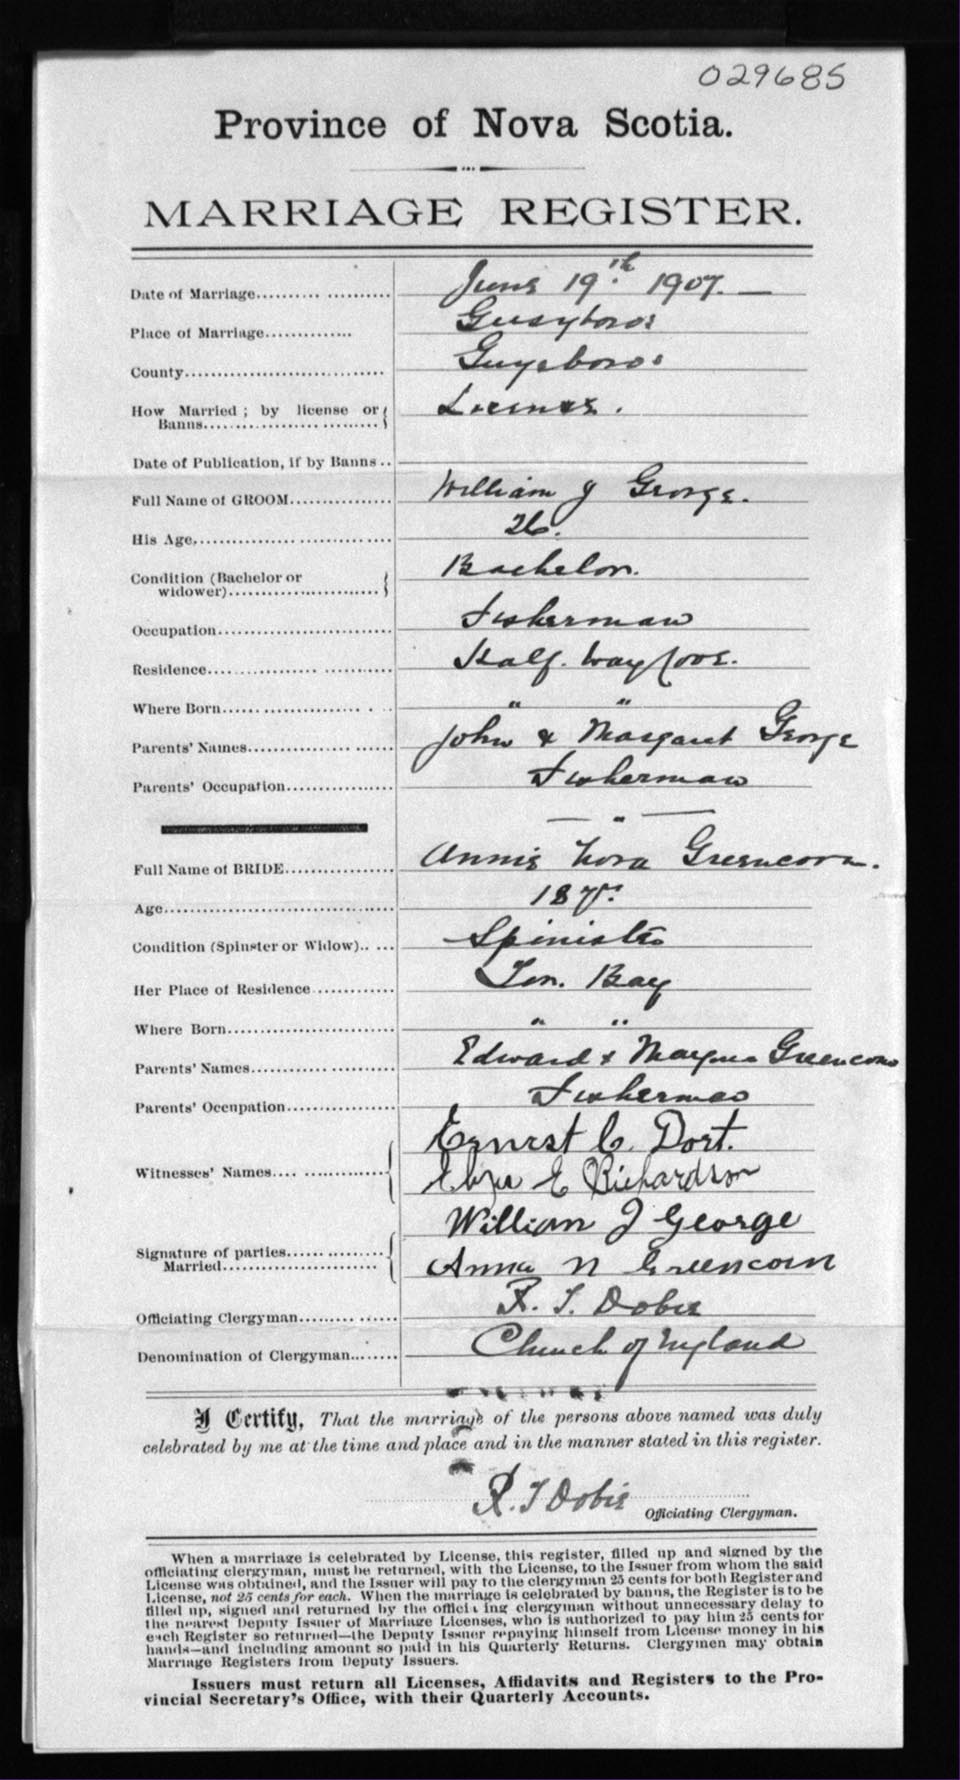 029685
Province of Nova Scotia.
MARRIAGE REGISTER.
Date of Marriage............ June 19th 1907. —
Place of Marriage............ Guysboro
County............ Guysboro
How Married ; by license or Banns............ License.
Date of Publication, if by Banns..
Full Name of GROOM............ William J George.
His Age............ 26.
Condition (Bachelor or widower)............ Bachelor.
Occupation............ Fisherman
Residence............ Half-way Cove.
Where Born............ " "
Parents' Names............ John & Margaret George
Parents' Occupation............ Fisherman
— " —
Full Name of BRIDE............ Annie Nora Greencorn.
Age............ 18
Condition (Spinster or Widow)..... Spinster
Her Place of Residence............ Tor. Bay
Where Born............ " "
Parents' Names............ Edward & Greencorn
Parents' Occupation............ Fisherman
Witnesses' Names............ Ernest C. Dort.
E Richardson
Signature of parties Married............ William J George
Annie N Greencorn
Officiating Clergyman............ R. T. Dobie
Denomination of Clergyman........ Church of England
I Certify, That the marriage of the persons above named was duly
celebrated by me at the time and place and in the manner stated in this register.
R. T Dobie
Officiating Clergyman.
When a marriage is celebrated by License, this register, filled up and signed by the
officiating clergyman, must be returned, with the License, to the Issuer from whom the said
License was obtained, and the Issuer will pay to the clergyman 25 cents for both Register and
License, not 25 cents for each. When the marriage is celebrated by banns, the Register is to be
filled up, signed and returned by the officiating clergyman without unnecessary delay to
the nearest Deputy Issuer of Marriage Licenses, who is authorized to pay him 25 cents for
each Register so returned—the Deputy Issuer repaying himself from License money in his
hands—and including amount so paid in his Quarterly Returns. Clergymen may obtain
Marriage Registers from Deputy Issuers.
Issuers must return all Licenses, Affidavits and Registers to the Pro-
vincial Secretary's Office, with their Quarterly Accounts.